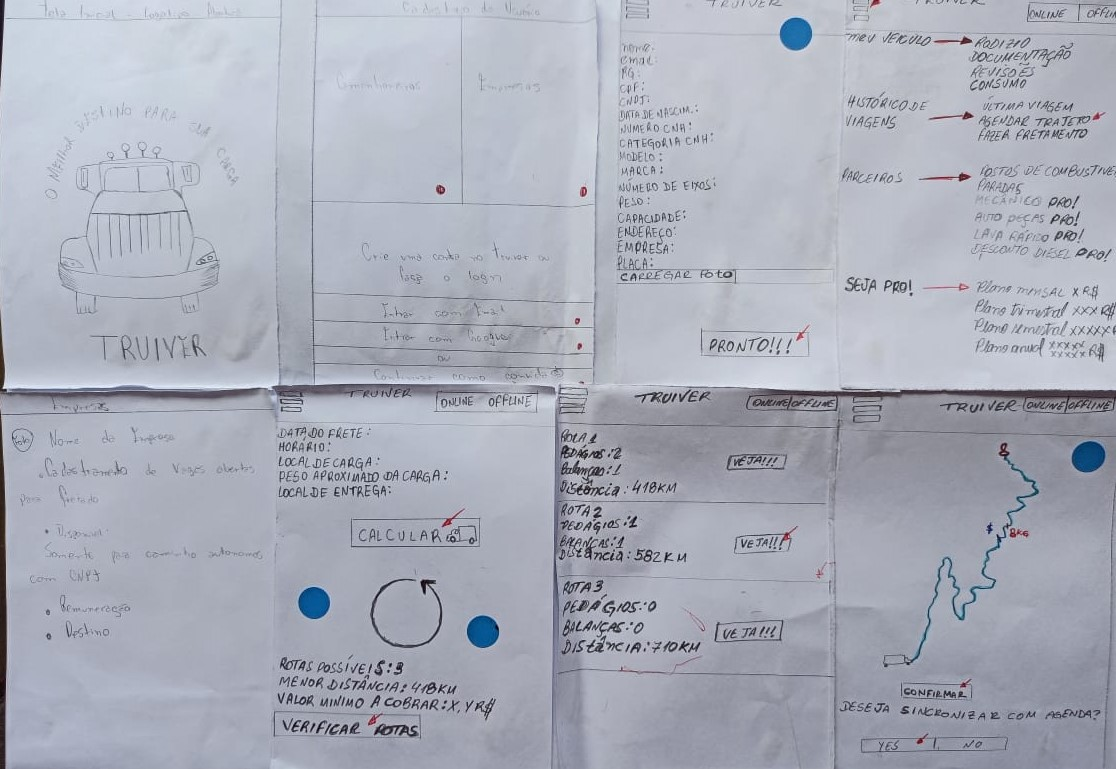 Tela Inicial - Logotipo
O MELHOR DESTINO PARA SUA CARGA
TRUIVER
Cadastro do Usuário
Caminhoneiros
Empresas
Crie uma conta no Truiver ou
faça o login
Entrar com Email
Entrar com Google
ou
Continuar como convidado
TRUIVER
nome:
email:
RG:
CPF:
CNPJ:
DATA DE NASCIM.:
NÚMERO CNH:
CATEGORIA CNH:
MODELO:
MARCA:
NÚMERO DE EIXOS:
PESO:
CAPACIDADE:
ENDEREÇO:
EMPRESA:
PLACA:
CARREGAR FOTO
PRONTO!!!
TRUIVER
ONLINE OFFLIN
MEU VEICULO
RODIZIO
DOCUMENTAÇÃO
REVISÕES
CONSUMO
HISTÓRICO DE
VIAGENS
ÚLTIMA VIAGEM
AGENDAR TRAJETO
FAZER FRETAMENTO
PARCEIROS
POSTOS DE COMBUSTIVE
PARADAS
MECÂNICO PRO!
AUTO PEÇAS PRO!
LAVA RÁPIDO PRO!
DESCONTO DIESEL PRO!
SEJA PRO!
Plano mensal X R$
Plano trimestral XXX R$
Plano semestral XXXXX
Plano anual XXXXX XXXXX R$
Empresas
Foto
Nome da Empresa
Cadastramento de Vagas abertas
para fretado
Disponível:
Somente para caminhão autonomos
com CNPJ
Remuneração
Destino
TRUIVER
ONLINE OFFLINE
DATA DO FRETE:
HORÁRIO:
LOCAL DE CARGA:
PESO APROXIMADO DA CARGA:
LOCAL DE ENTREGA:
CALCULAR
ROTAS POSSÍVEIS: 3
MENOR DISTÂNCIA: 418KM
VALOR MINIMO A COBRAR: X,Y R$
VERIFICAR ROTAS
TRUIVER
ONLINE/OFFLINE
ROTA 1
PEDÁGIOS: 2
Balanças: 1
Distância: 418KM
VEJA!!!
ROTA 2
PEDÁGIOS: 1
BALANÇAS: 1
Distância: 582KM
VEJA!!!
ROTA 3
PEDÁGIOS: 0
BALANÇAS: 0
Distância: 710KM
VEJA!!!
TRUIVER
ONLINE/OFFLINE
$
KG
CONFIRMAR
DESEJA SINCRONIZAR COM AGENDA?
YES
NO